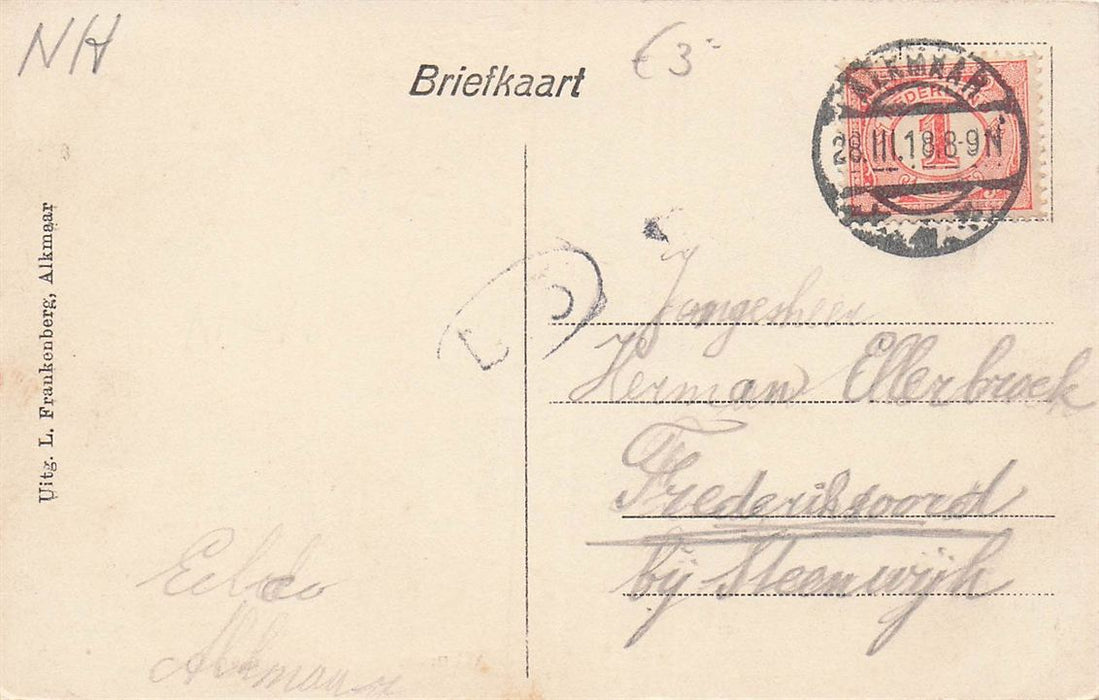 NH
€ 3-
Briefkaart
ALKMAAR
28.III.18.8-9N
NEDERLAND
1
Uitg. L. Frankenberg, Alkmaar
Jongesheer
Herman Ellerbroek
Frederiksoord
bij Steenwijk
Alkmaar